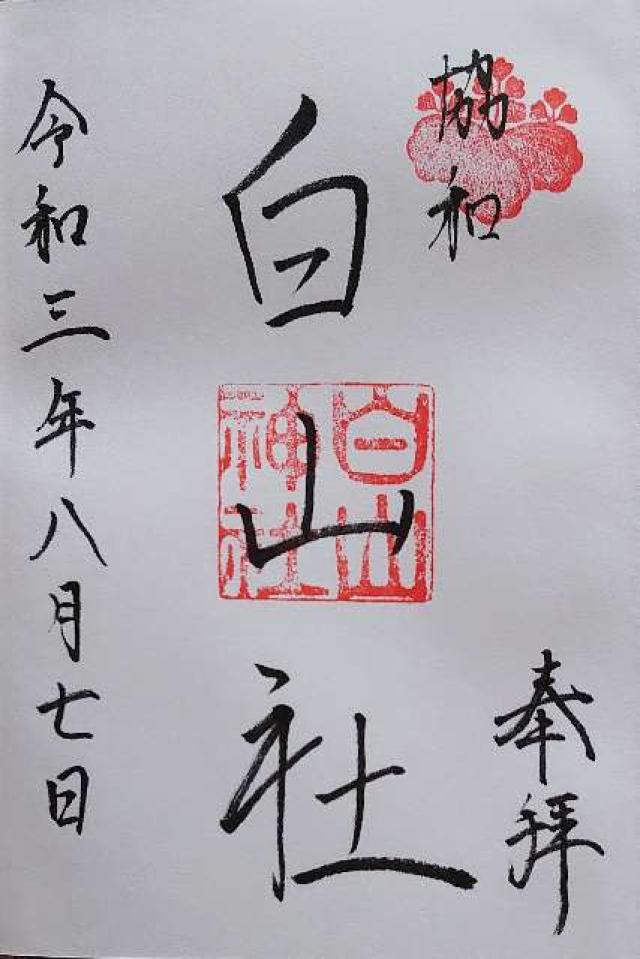 協和
奉拝
白山社
白山神社
令和三年八月七日